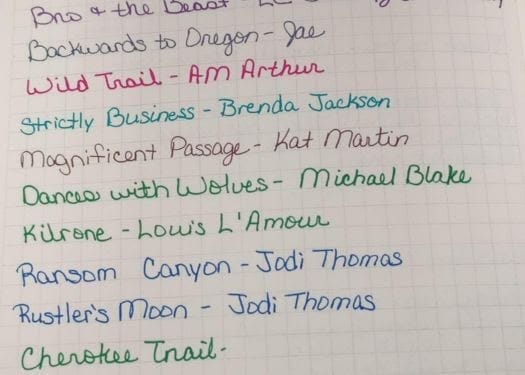 Bro + the Beast -
Backwards to Oregon - Jae
Wild Trail - AM Arthur
Strictly Business - Brenda Jackson
Magnificent Passage - Kat Martin
Dances with Wolves - Michael Blake
Kilrone - Louis L'Amour
Ransom Canyon - Jodi Thomas
Rustler's Moon - Jodi Thomas
Cherokee Trail -